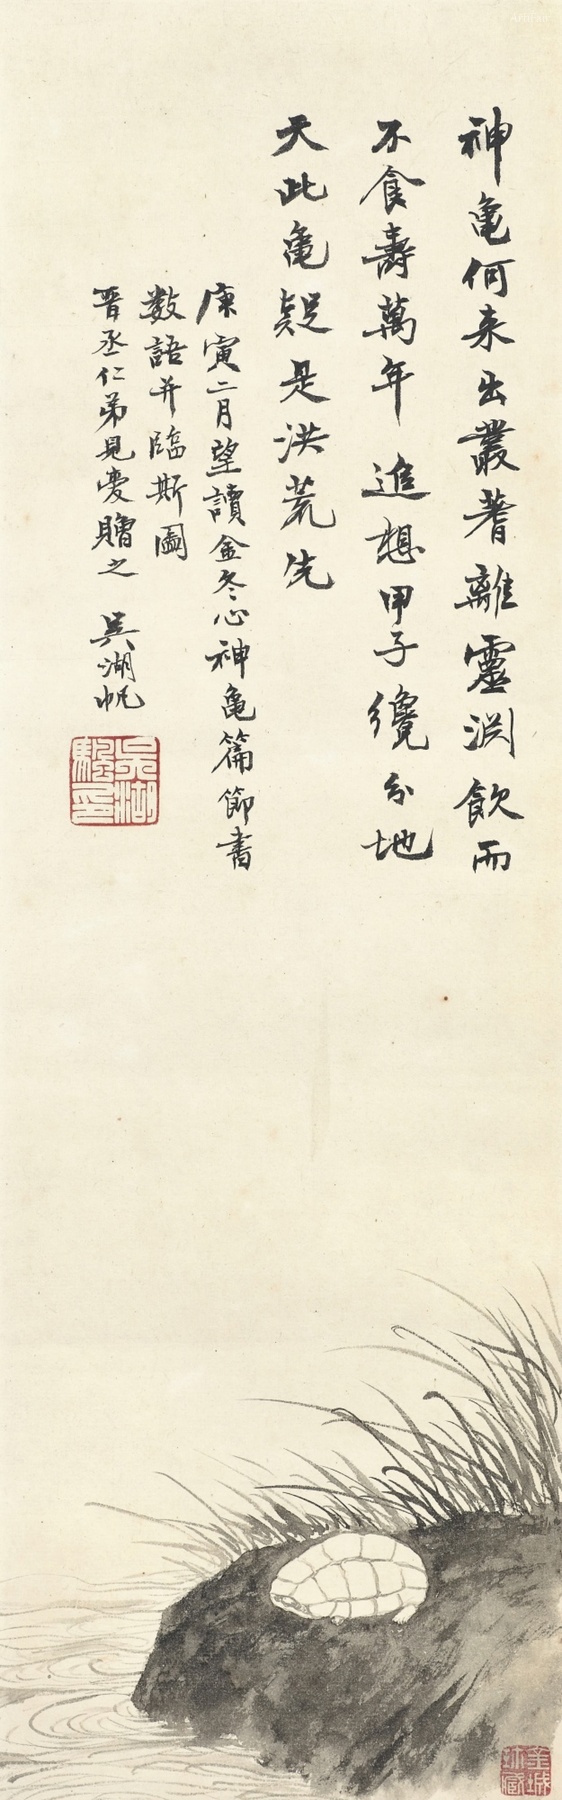 神龜何来出叢蓍離靈淵飲而
不食壽萬年追想甲子纔分地
天此龜疑是洪荒先
庚寅二月望讀金冬心神龜篇節書
數語并臨斯圖
晋丞仁弟見愛贈之 吴湖帆
吴湖
騵印